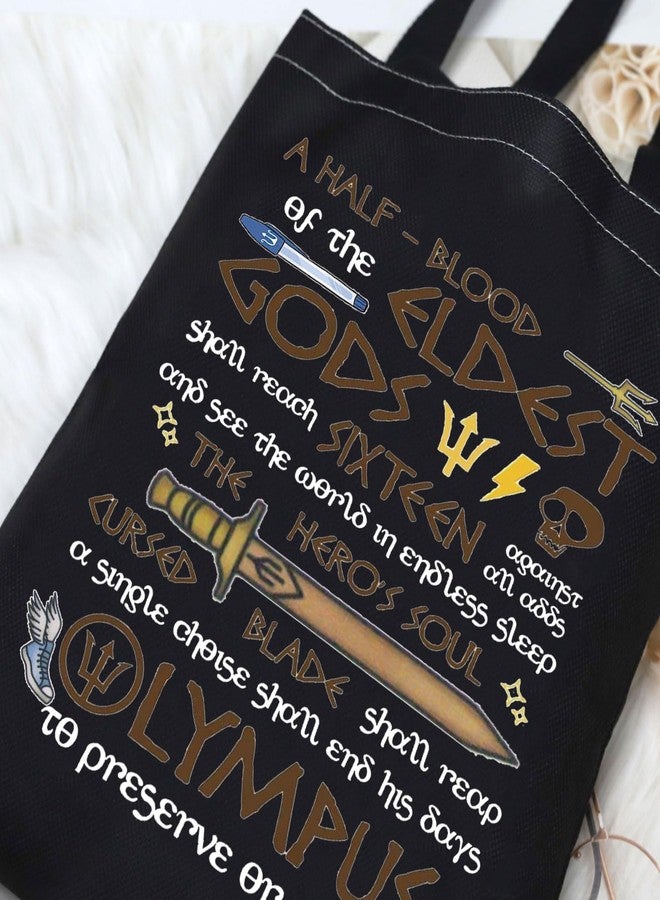 A HALF - BLOOD
of the
ELDEST
GODS
shall reach SIXTEEN against
all odds
and see the world in endless sleep
THE HERO'S SOUL
CURSED BLADE shall reap
a single choise shall end his days
OLYMPUS
to preserve or